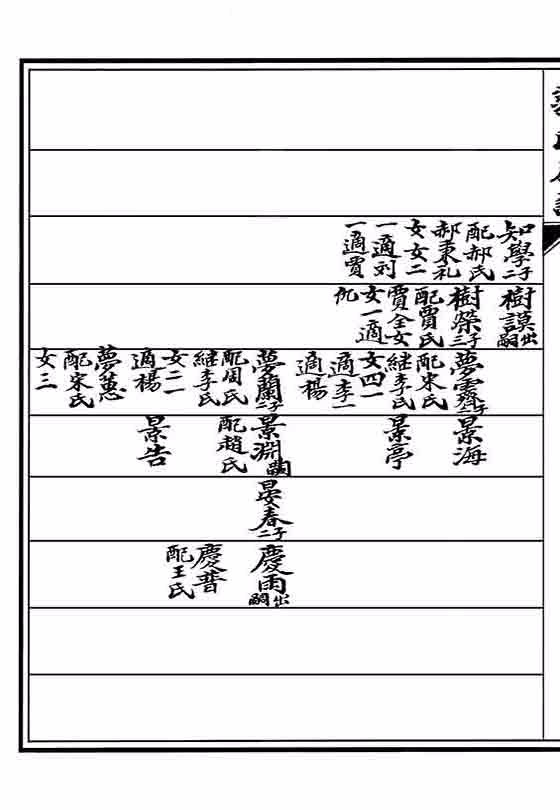 知學二子
配郝氏
郝秉礼
女女二
一適刘
一適賈
樹謨出嗣
樹榮三子
配賈氏
賈全女
女一適
仉
夢齊二子
配宋氏
継李氏
女四一
適李一
適楊
夢蘭二子
配周氏
継李氏
女二一
適楊
夢蕙
配宋氏
女三
景海
景亭
景淵嗣
配趙氏
景告
晏春二子
慶雨出嗣
慶普
配王氏